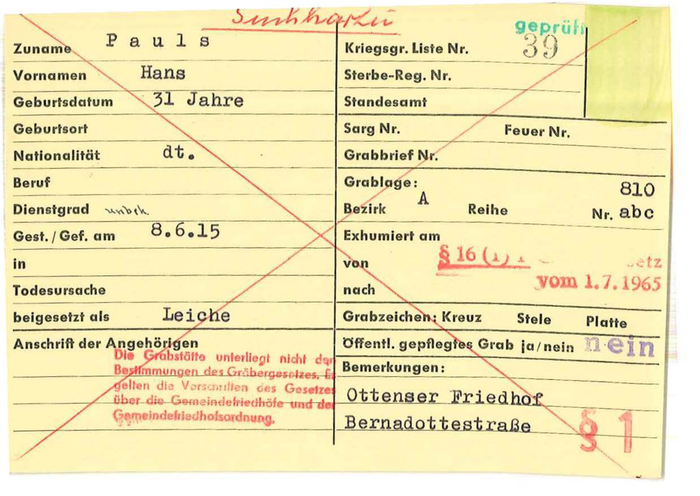 Suchkartei
geprüft
Zuname Pauls
Vornamen Hans
Geburtsdatum 31 Jahre
Geburtsort
Nationalität dt.
Beruf
Dienstgrad unbek
Gest./Gef. am 8.6.15
in
Todesursache
beigesetzt als Leiche
Anschrift der Angehörigen
Die Grabstätte unterliegt nicht den
Bestimmungen des Gräbergesetzes. Es
gelten die Vorschriften des Gesetzes
über die Gemeindefriedhöfe und der
Gemeindefriedhofsordnung.
Kriegsgr. Liste Nr. 39
Sterbe-Reg. Nr.
Standesamt
Sarg Nr. Feuer Nr.
Grabbrief Nr.
Grablage: 810
Bezirk A Reihe Nr. abc
Exhumiert am
§ 16 (1)
von vom 1.7.1965
nach
Grabzeichen: Kreuz Stele Platte
Öffentl. gepflegtes Grab ja/nein nein
Bemerkungen:
Ottenser Friedhof
Bernadottestraße
§ 1